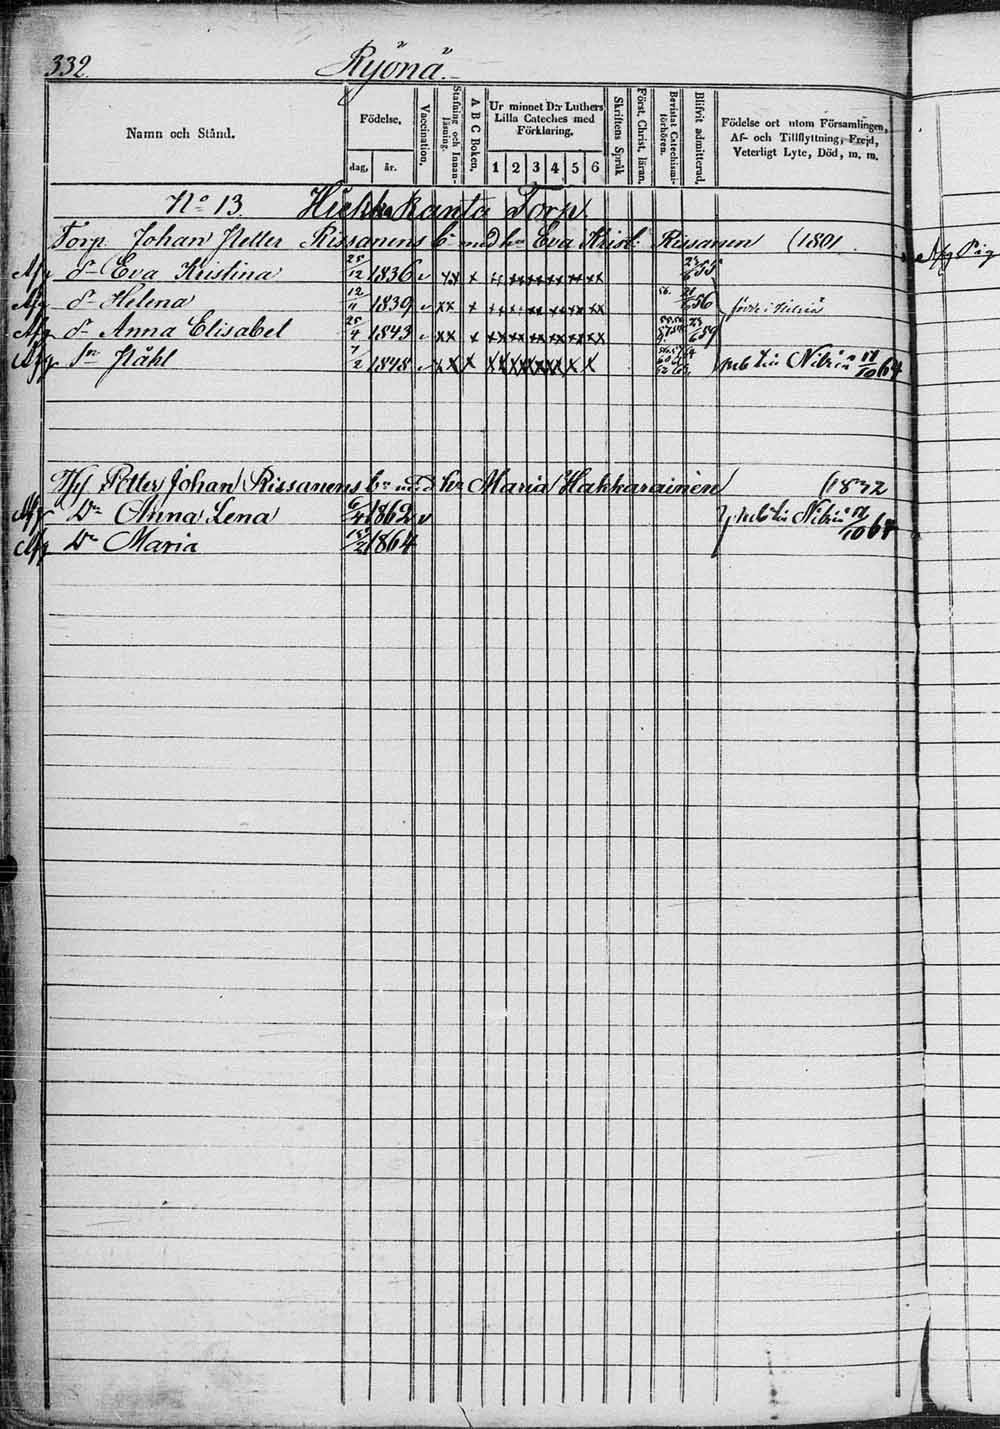 332. Ryönä.
Namn och Stånd.
Födelse,
dag, år.
Vaccination.
Stafning och Innanläsning.
A B C Boken.
Ur minnet D:r Luthers Lilla Cateches med Förklaring.
1 2 3 4 5 6
Skriftens Språk
Först. Christ. läran.
Bevistat Catechismiförhören.
Blifvit admitterad.
Födelse ort utom Församlingen, Af- och Tillflyttning, Frejd, Veterligt Lyte, Död, m. m.
No 13. Hiekkakanta Torp.
Torp. Johan Petter Rissanens b. med h. Eva Krist: Rissanen (1801
Afg dr Eva Kristina 25/12 1836 v xx x x xx xx xx xx xx 55
Afg dr Helena 12/11 1839 v xx x xx xx xx xx xx xx 56
Afg dr Anna Elisabet 25/4 1843 v xx x xx xx xx xx xx xx 59
Afg sn Påhl 7/2 1848 v xx x xx xx xx xx x x Nilsiä 11/10 64
Petter Johan Rissanens b. med h. Maria Hakkarainen (1832
Afg Dr Anna Lena 6/4 1862 v Nilsiä 11/10 64
Afg Dr Maria 1864